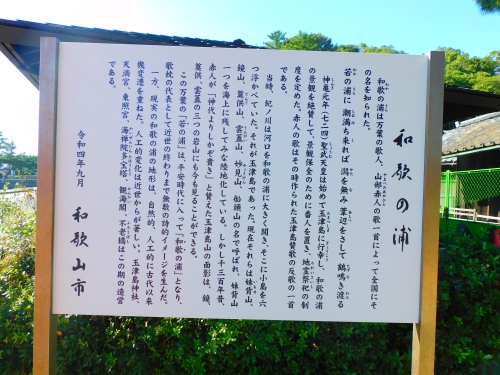 和歌の浦
和歌の浦は万葉の歌人、山部赤人の歌一首によって全国にそ
の名を知られた。
若の浦に 潮満ち来れば 潟を無み 葦辺をさして 鶴鳴き渡る
神亀元年(七二四)聖武天皇は始めて玉津島に行幸し、和歌の浦
の景観を絶賛して、景観保全のために番人を置き、地霊祭祀の制
度を定めた。赤人の歌はその時作られた玉津島賛歌の反歌の一首
である。
当時、紀ノ川は河口を和歌の浦に大きく開き、そこに小島を六
つ浮かべていた。それが玉津島であった。現在それらは妹背山、
鏡山、奠供山、雲蓋山、妙見山、船頭山の名で呼ばれ、妹背山
一つを海上に残してみな陸地化している。しかし千三百年昔、
赤人が「神代よりしかぞ貴き」と讃えた玉津島山の面影は、鏡、
奠供、雲蓋の三つの岩山にも今も見ることができる。
この万葉の「若の浦」は、平安時代に入って「和歌の浦」となり、
歌枕の代表として近世の終わりまで無数の詩的イメージを生んだ。
一方、現実の和歌の浦の地形は、自然的、人工的に古代以来
幾変遷を重ねた。人工的変化は近世からが著しい。玉津島神社、
天満宮、東照宮、海禅院多宝塔、観海閣、不老橋はこの期の造営
である。
令和四年九月
和歌山市